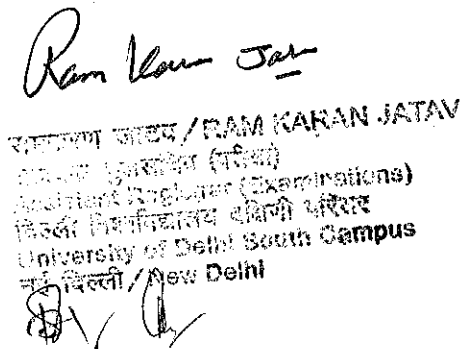 Ram Karan Jatav
रामकरण जाटव / RAM KARAN JATAV
(परीक्षा)
Assistant Registrar (Examinations)
दिल्ली विश्वविद्यालय दक्षिणी परिसर
University of Delhi South Campus
नई दिल्ली / New Delhi